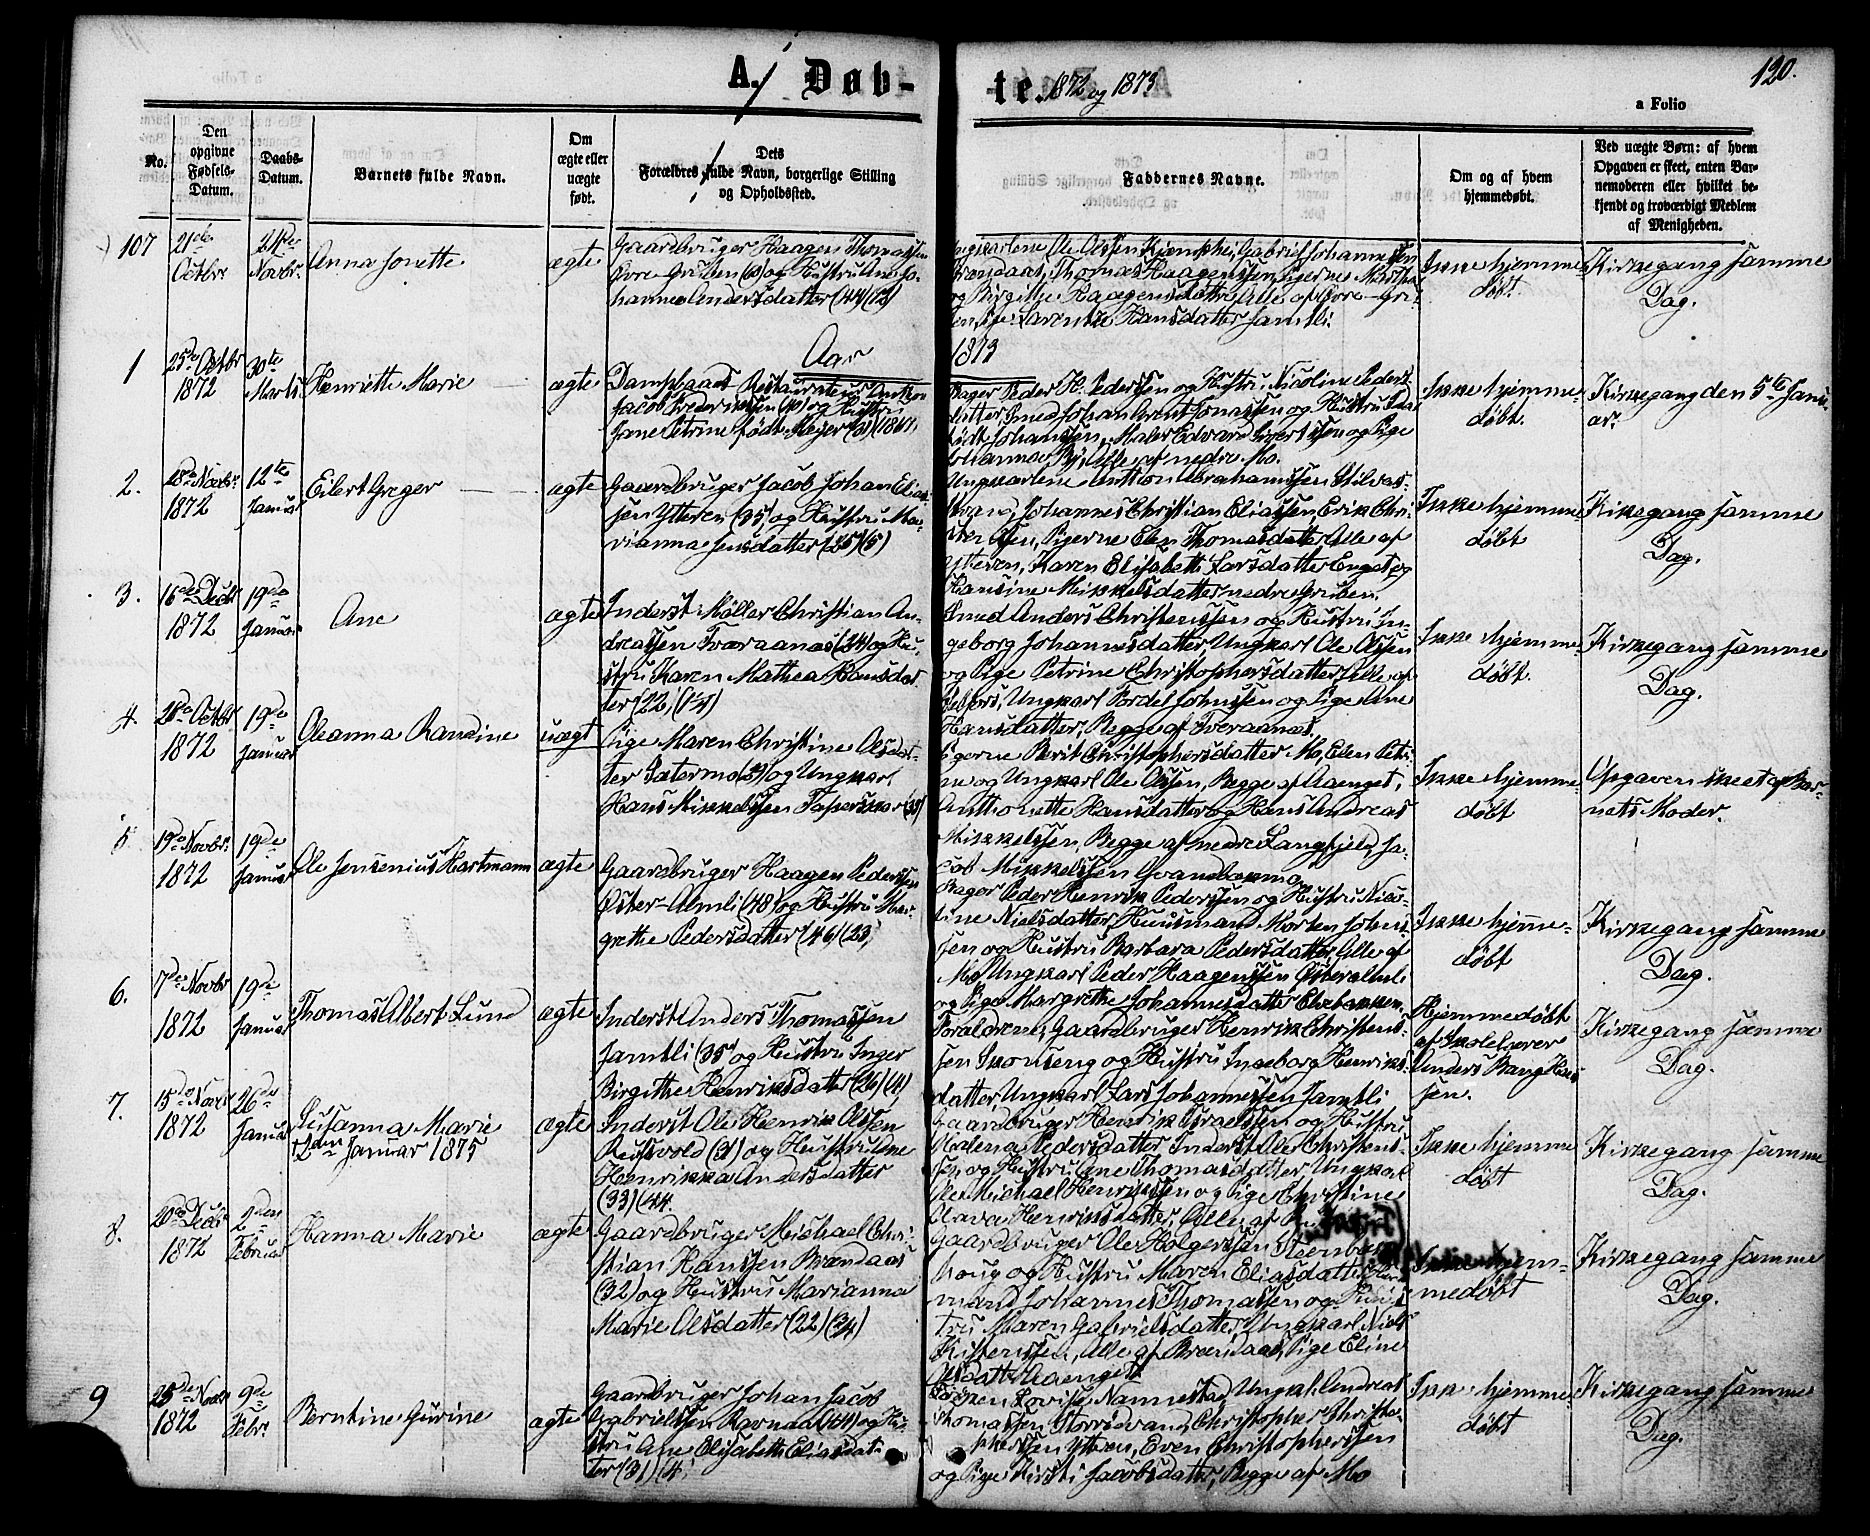 A. Døb-
te. 1872 og 1873
120.
a Folio
No.
Den opgivne Fødsels-Datum.
Daabs-Datum.
Barnets fulde Navn.
Om ægte eller uægte født.
Dets Forældres fulde Navn, borgerlige Stilling og Opholdssted.
Faddernes Navne.
Om og af hvem hjemmedøbt.
Ved uægte Børn: af hvem
Opgaven er skeet, enten Bar-
nemoderen eller hvilket be-
kjendt og troværdigt Medlem
af Menigheden.
107
21de Octbr
24de Novbr.
Anna Jonette
ægte
Gaardbruger Haagen Thomassen
Store-Gruben og Hustru Ane Jo-
hanna Andersdatter (44) (12)
Ungkarlene Ole Olssen, Gabriel Johannessen
Brændaas, Thomas Haagenssen, Pigerne Martha
og Birgitte Haagensdatter Alle af Store-Gru-
ben, Pige Lorentze Hansdatter Jamtli.
Ikke hjemme-
døbt.
Kirkegang samme
Dag.
Aar
1873
1
25de Octbr
1872
30te
Marts
Henriette Marie
ægte
Dampbaads Restaurateur
Jacob Frederikssen (40) og Hustru
Jane Petrine født Meyer (31)
Bager Peder H. Pederssen og Hustru Nicoline Peders-
datter, Smed Johan Arent Jonassen og Hustru
født Johanssen, Maler Edvard Sivertssen og Pige
Alle af nedre Mo.
Ikke hjemme-
døbt.
Kirkegang den 5te Janu-
ar.
2.
28de Novbr.
1872
12te
Januar
Eilert Greger
ægte
Gaardbruger Jacob Johan Elias-
sen Ytteren (35) og Hustru Ma-
rianna Jensdatter (25) (5)
Ungkarlene Anthon Abrahamssen Stilvas-
Johannes Christian Eliassen, Erik Chri-
Pigerne Elen Thomasdatter Alle af
Ytteren, Karen Elisabeth Larsdatter Enget og
Hansine Mikkelsdatter nedre Gruben.
Ikke hjemme-
døbt
Kirkegang samme
Dag.
3.
16de Decbr
1872
19de
Januar
Ane
ægte
Inderst Møller Christian An-
dreassen Tveraanæs (24) og Hu-
stru Karen Mathea Hansdat-
ter (22)
Smed Anders Christenssen og Hustru In-
geborg Johannesdatter, Ungkarl Ole Olssen
og Pige Petrine Christophersdatter, Alle af
Selfors, Ungkarl Tordel Johnssen og Pige Ane
Hansdatter, Begge af Tveraanæs.
Ikke hjemme-
døbt.
Kirkegang samme
Dag.
4.
28de Octbr
1872
19de
Januar
Oleanna Randine
uægte
Pige Maren Christine Olsdat-
ter Sætermo og Ungkarl
Hans Mikkelssen
Pigerne Berit Christophersdatter Mo, Elen Petri-
ne og Ungkarl Ole Olssen, Begge af Aaenget,
Anthonette Hansdatter og Hans Andreas
Mikkelssen, Begge af nedre Langfjeld, Ja-
cob Mikkelssen
Ikke hjemme-
døbt
Opgaven skeet af Bar-
nets Moder.
5
19de Novbr.
1872
19de
Januar
Ole Jensenius Hartmann
ægte
Gaardbruger Haagen Pederssen
Øster-Almli (48) og Hustru Mar-
grethe Pedersdatter (46) (23)
Bager Peder Henrik Pederssen og Hustru Nico-
line Nielsdatter, Huusmand Morten Johns-
sen og Hustru Barbara Pedersdatter, Alle af
Mo, Ungkarl Peder Haagenssen Østeralmli
og Pige Margrethe Johannesdatter
Ikke hjemme-
døbt
Kirkegang samme
Dag.
6.
7de Novbr
1872
19de
Januar
Thomas Albert Lund
ægte
Inderst Anders Thomassen
Jamtli (35) og Hustru Inger
Birgitha Henriksdatter (26) (4)
Forældrene, Gaardbruger Henrik Christens-
sen Skonseng og Hustru Ingeborg Henriks-
datter, Ungkarl Lars Johannessen Jamtli
Hjemmedøbt
af Skolelærer
Anders Bang Hans-
sen.
Kirkegang samme
Dag.
7.
15de Novbr
1872
26de
Januar
Susanna Marie
Januar 1875
ægte
Inderst Ole Henrik Olssen
Ruusvold (31) og Hustru Ane
Henrikka Andersdatter
(33) (44
Gaardbruger Henrik Israelssen og Hustru
Malena Pedersdatter, Inderst Ole Christens-
sen og Hustru Ane Thomasdatter, Ungkarl
Ole Michael Henrikssen og Pige Christine
Olava Henriksdatter, Alle af
Ikke hjemme
døbt
Kirkegang samme
Dag.
8.
20de Decbr
1872
2den
Februar
Hanna Marie
ægte
Gaardbruger Michael Chri-
stian Hanssen Brændaas
(32) og Hustru Marianna
Marie Olsdatter (22) (3/4)
Gaardbruger Ole Holgerssen Steenbæk-
houg og Hustru Maren Eliasdatter, Huus-
mand Johannes Thomassen og Hus-
tru Maren Gabrielsdatter, Ungkarl Niels
Kristenssen, Alle af Brændaas, Pige Eline
Olsdatter Aaenget
Ikke hjem-
medøbt
Kirkegang samme
Dag.
9
25de Novbr
1872
9de
Febr.
Berntine Gurine
ægte
Gaardbruger Johan Jacob
Gabrielssen Ravndal og Hu-
stru Ane Elisabeth Eliasdat-
ter (31) (4)
Frøken Lovise Nannestad, Ungk. Andreas
Thomassen Storsvand, Christopher Christo-
pherssen Ytteren, Even Christopherssen
og Pige Kirsti Jacobsdatter, Begge af Mo
Ikke hjemme-
døbt
Kirkegang samme
Dag.